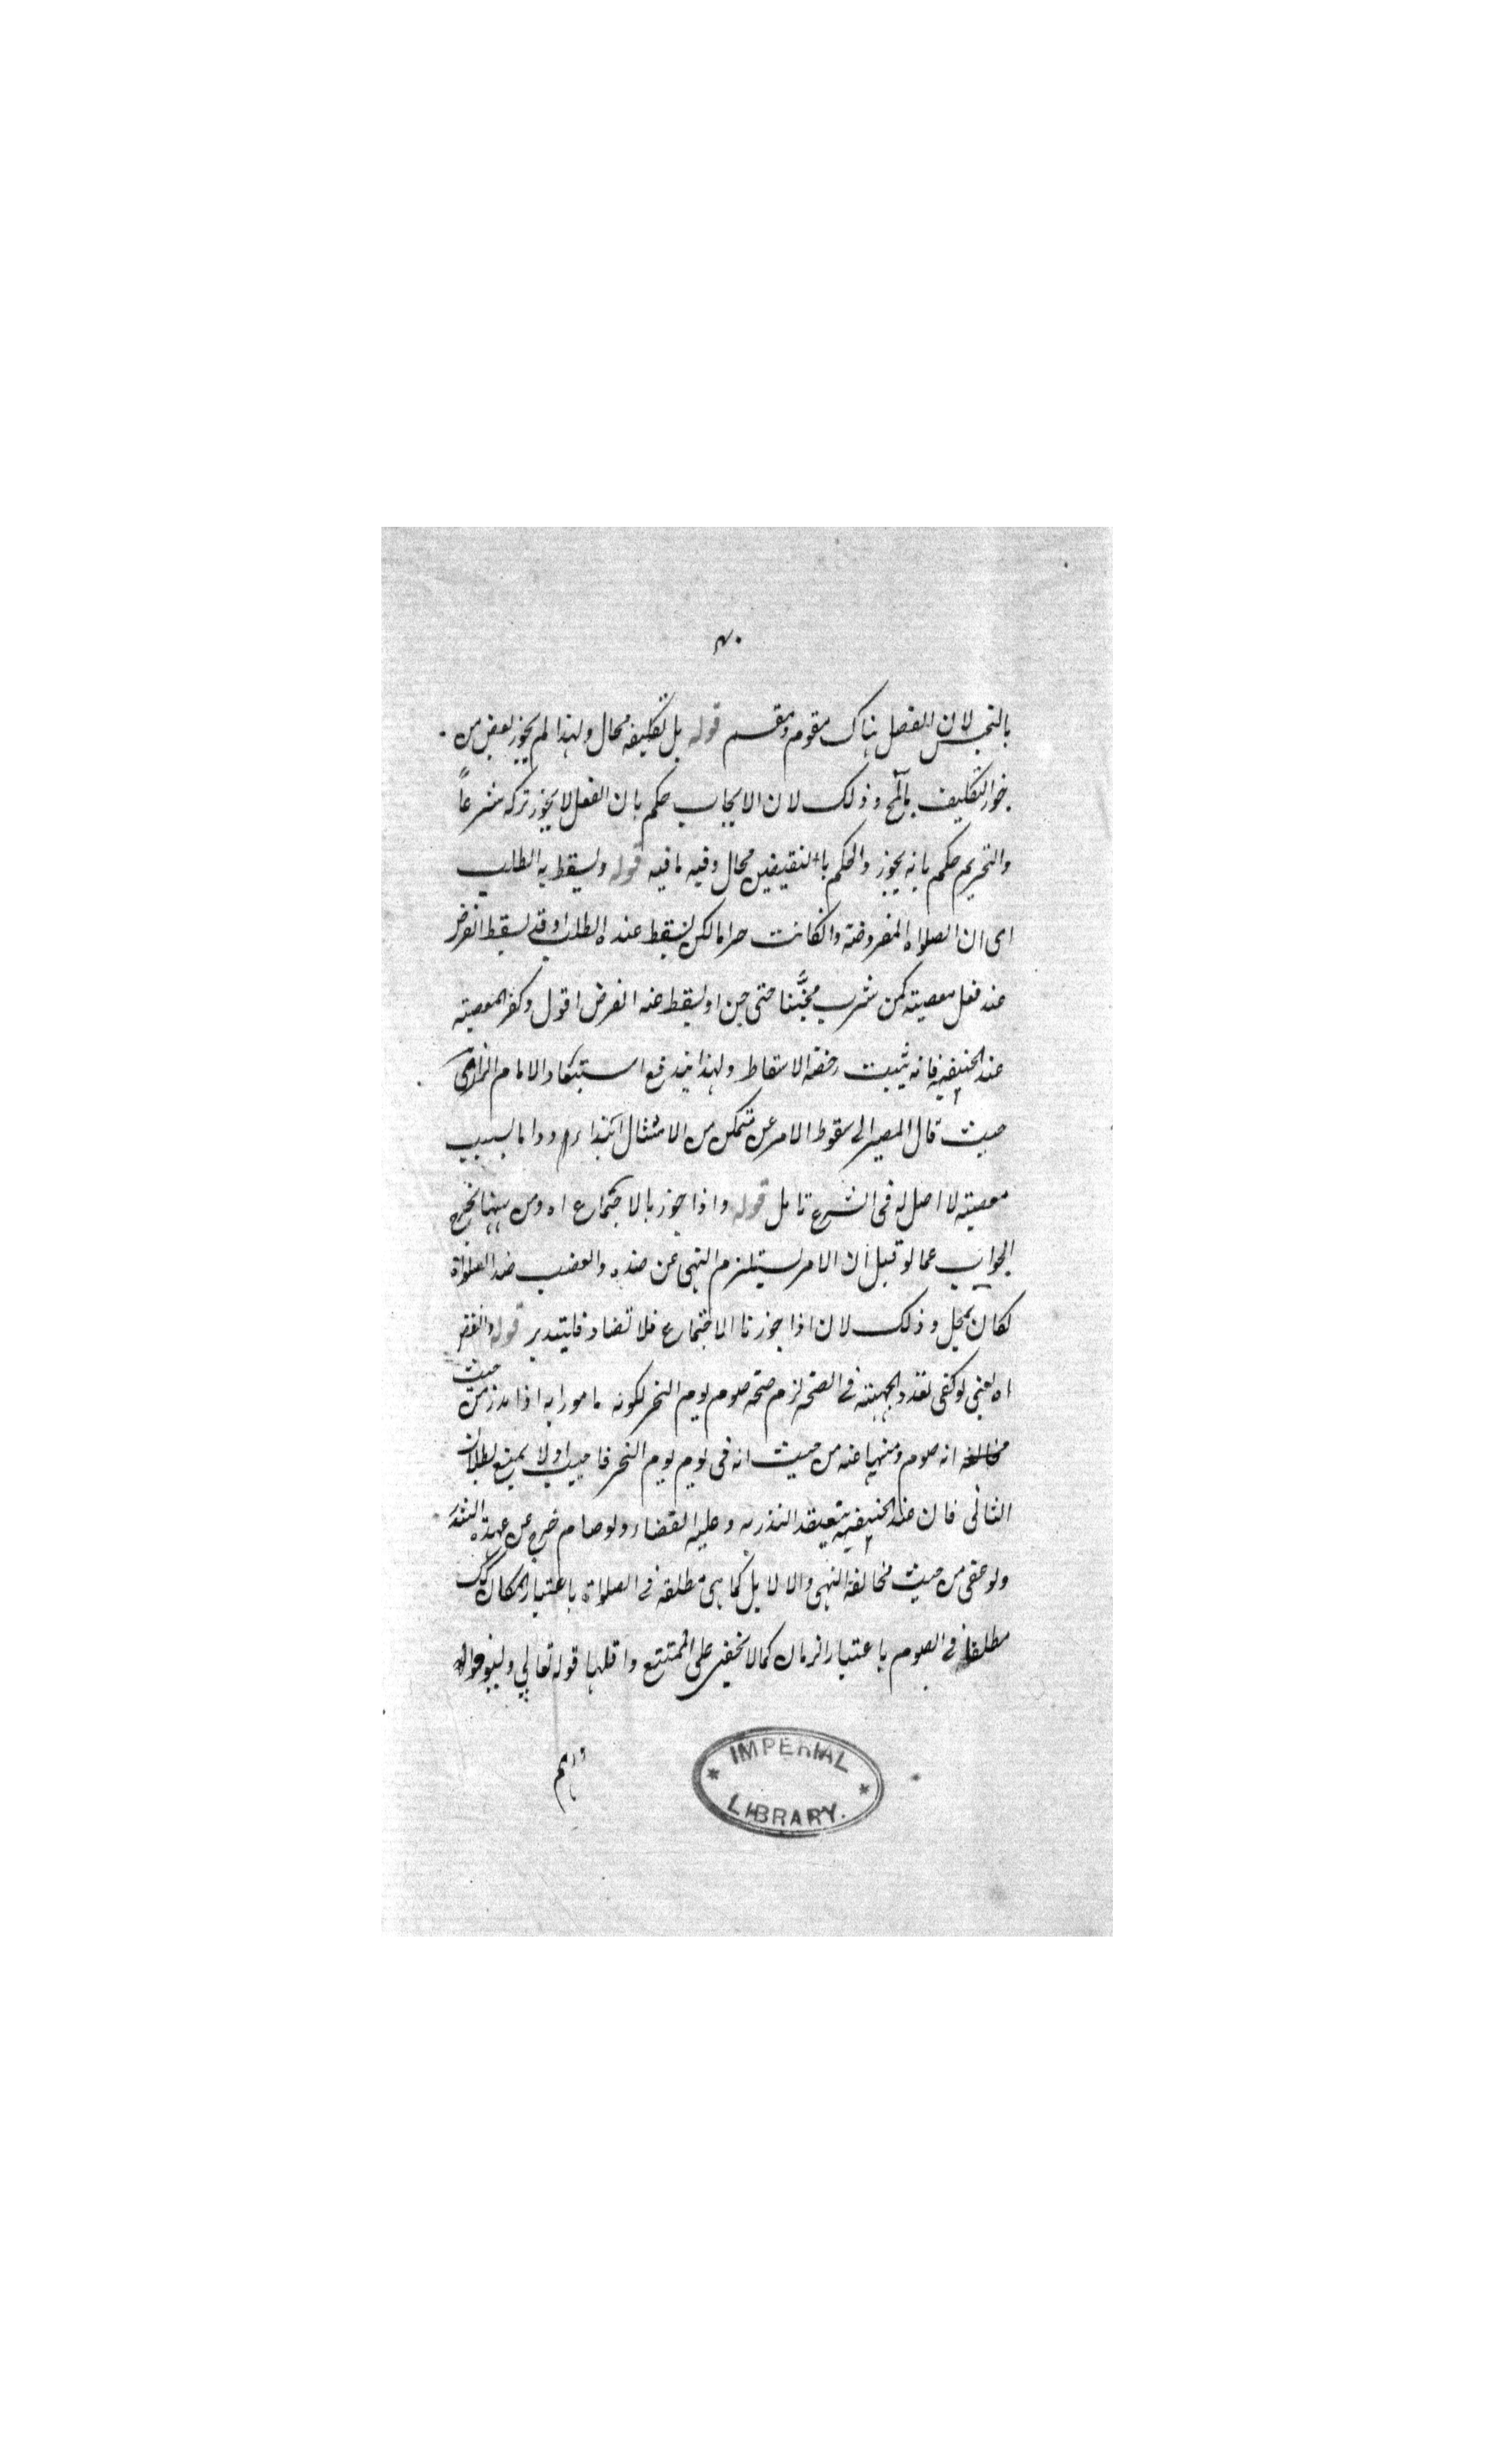 ۷۰
بالتجنس لان الفصل هناك مقوم ومقسم قوله بل تكليفه محال ولهذا لم يجوز بعض من
جوز التكليف بالمح وذلك لان الايجاب حكم بان الفعل لا يجوز تركه شرعاً
والتحريم حكم بانه يجوز والحكم بالنقيضين محال وفيه ما فيه قوله ويسقط به الطلب
اى ان الصلواه المفروضة وانكانت حراما لكن يسقط عنده الطلب وقد يسقط الفرض
عند فعل معصيته كمن شرب مجنّنا حتى جن اويسقط عنه الفرض اقول وكفر المعصيته
عند الحنيفيه فانه يثبت رخصة الاسقاط ولهذا يندفع استبعاد الامام الرازى
حيث قال المصير الى سقوط الامر عن متمكن من الامتثال ابتداء ودواما بسبب
معصيته لا اصل له فى الشرع تامل قوله واذا جوز بالاجتماع اه ومن ههنا يخرج
الجواب عما لو قيل ان الامر يستلزم النهى عن ضده والغصب ضد الصلواة
لكان يحيل وذلك لان اذا جوزنا الاجتماع فلا تضاد فليتدبر قوله والنقض
اه يعنى لو كفى تعدد الجهته فى الصحه لزم صحه صوم يوم النحر لكونه مامورا به اذا نذر من حيث
انه صوم ومنهيا عنه من حيث انه فى يوم يوم النحر فاجيب اولا يمنع بطلان
التالى فان عند الحنيفيه يتعقد النذر به وعليه القضاء ولو صام خرج عن عهدة النذر
ولو عصى من حيث مخالفة النهى والا لايل كما هى مطلقه فى الصلواة باعتبار المكان كك
مطلقا فى الصوم باعتبار الزمان كما لا يخفى على المتتبع واقلها قوله تعالي وليوفوا
IMPERIAL
LIBRARY.